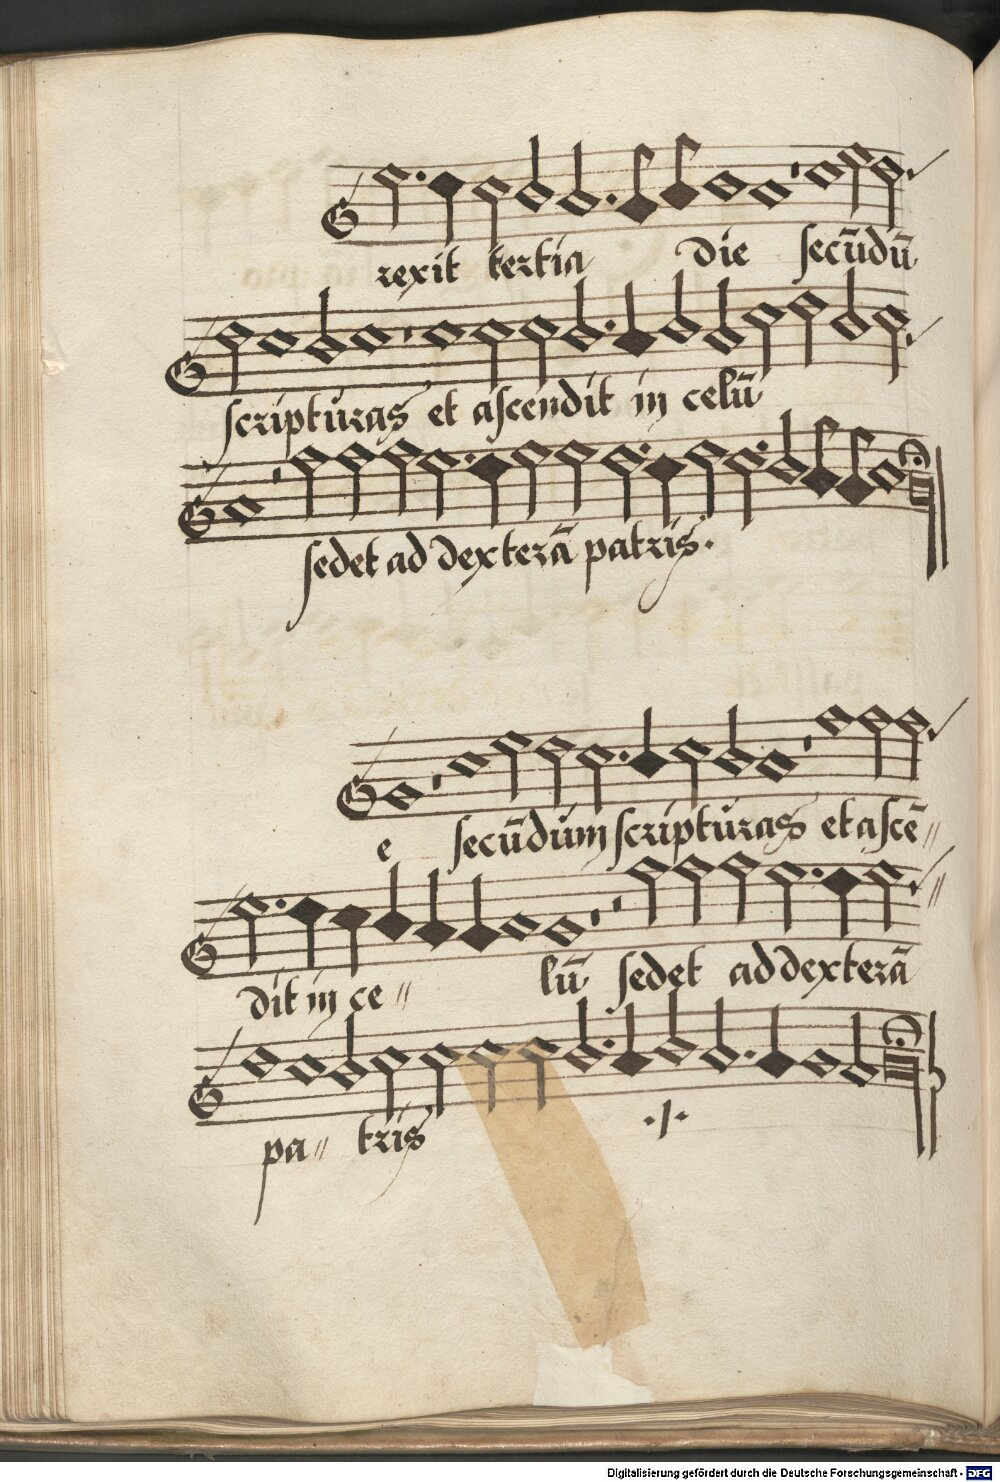 rexit tertia die secūdū
scripturas et ascendit in celū
sedet ad dexterā patris.
e secūdum scripturas et ascē〃
dit in ce〃 lū sedet ad dexterā
pa〃 tris ./.
Digitalisierung gefördert durch die Deutsche Forschungsgemeinschaft - DFG